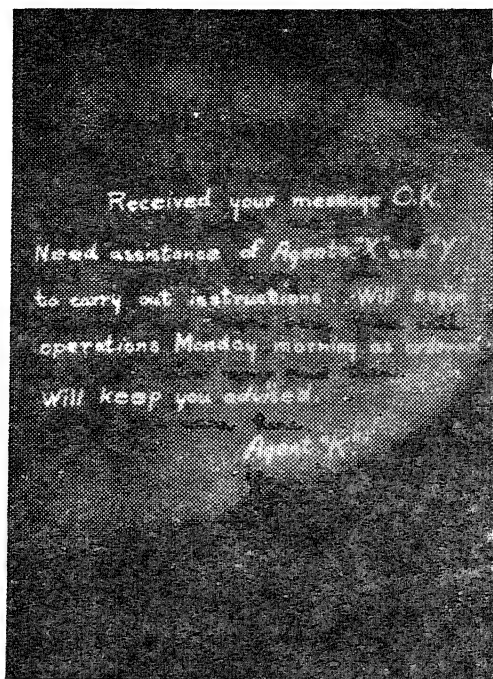 Received your message O.K.
Need assistance of Agents "X" and "Y"
to carry out instructions. Will begin
operations Monday morning as
Will keep you advised.
Agent "K"